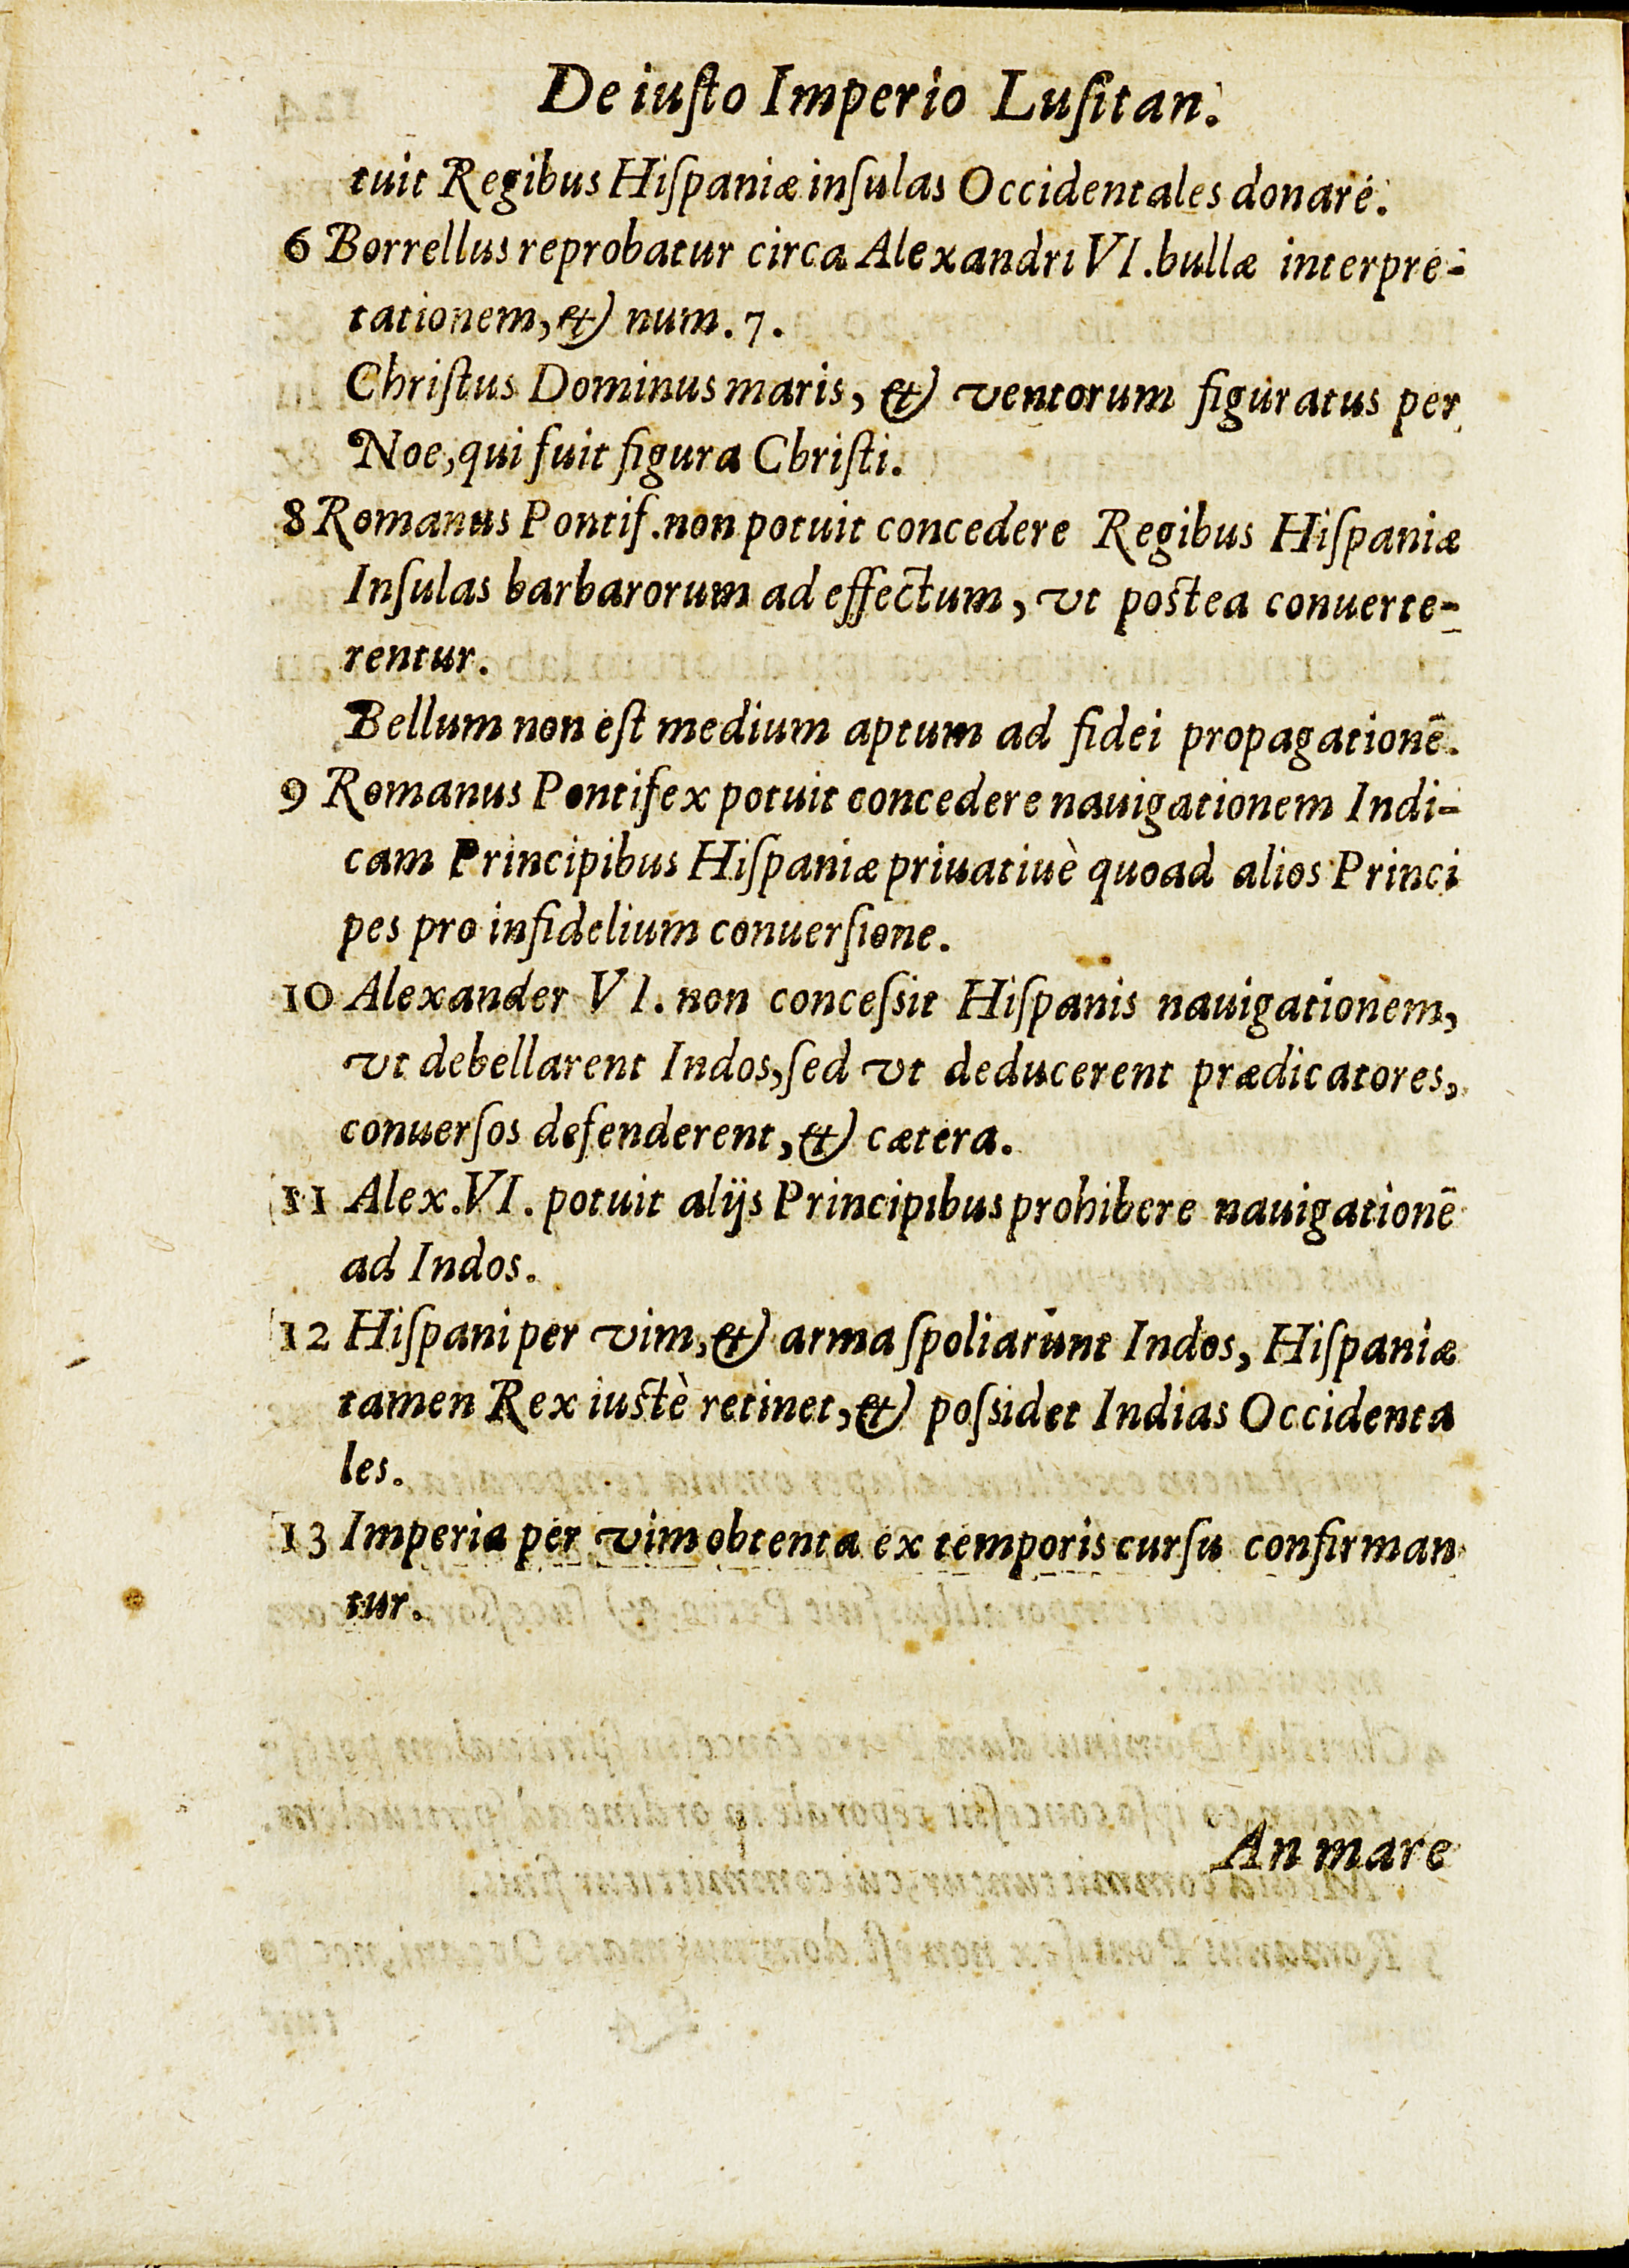 De iuſto Imperio Luſitan.
tuit Regibus Hiſpaniæ inſulas Occidentales donare.
6 Borrellus reprobatur circa Alexandri VI. bullæ interpre-
tationem, & num. 7.
Chriſtus Dominus maris, & ventorum figuratus per
Noe, qui fuit figura Chriſti.
8 Romanus Pontif. non potuit concedere Regibus Hiſpaniæ
Inſulas barbarorum ad effectum, vt poſtea conuerte-
rentur.
Bellum non eſt medium aptum ad fidei propagationē.
9 Romanus Pontifex potuit concedere nauigationem Indi-
cam Principibus Hiſpaniæ priuatiuè quoad alios Princi
pes pro infidelium conuerſione.
10 Alexander VI. non conceſsit Hiſpanis nauigationem,
vt debellarent Indos, ſed vt deducerent prædicatores,
conuerſos defenderent, & cætera.
11 Alex. VI. potuit alijs Principibus prohibere nauigationē
ad Indos.
12 Hiſpani per vim, & arma ſpoliarunt Indos, Hiſpaniæ
tamen Rex iuſtè retinet, & poſsidet Indias Occidenta
les.
13 Imperia per vim obtenta ex temporis curſu confirman
tur.
An mare